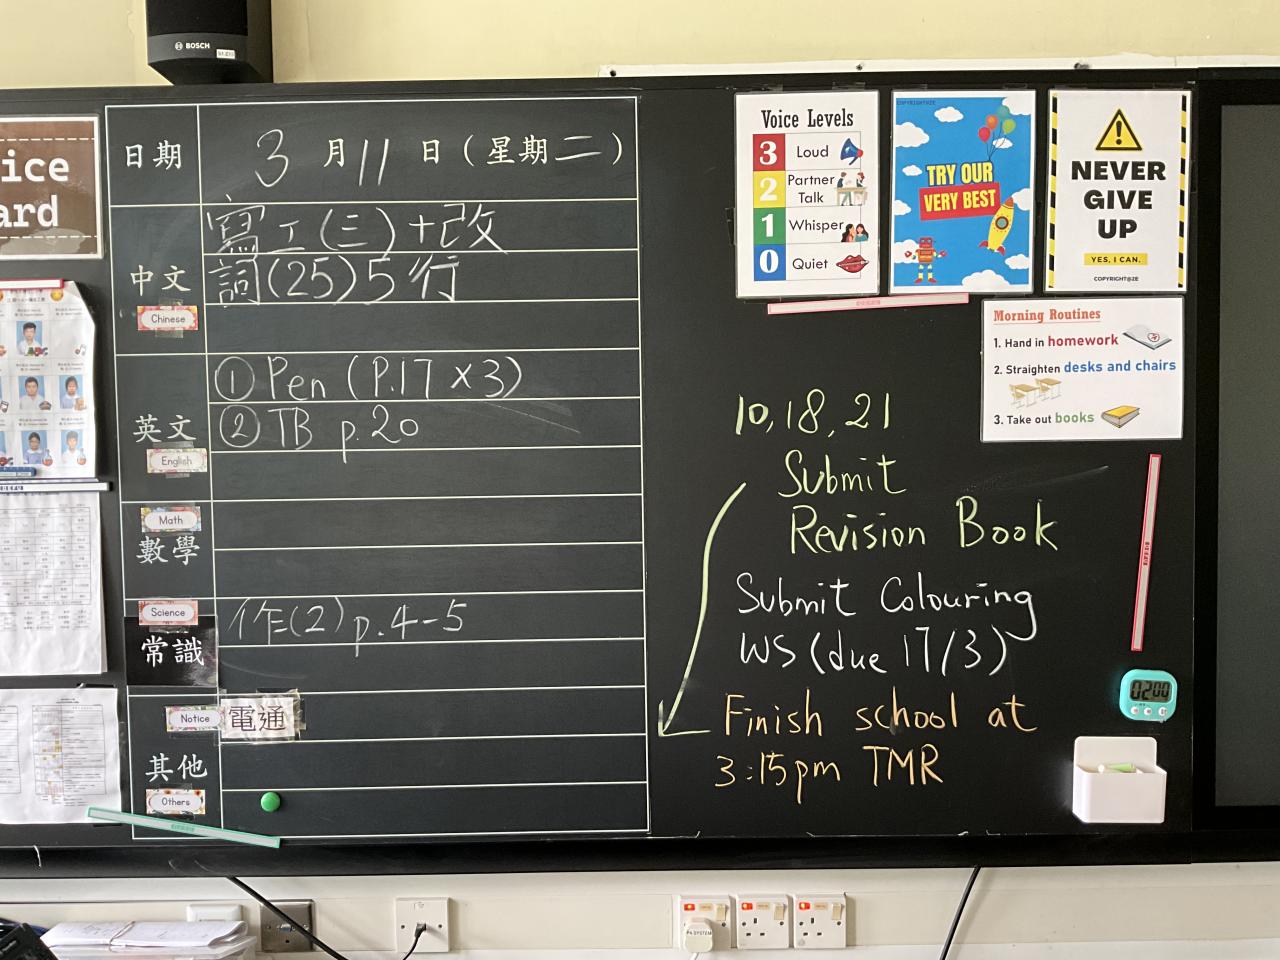 BOSCH
ice
ard
日期
3 月 11 日 ( 星期 二 )
中文
Chinese
寫工(三)+改
詞(25)5行
英文
English
① Pen (P.17 × 3)
② TB p.20
Math
數學
Science
常識
作(2) p.4-5
Notice
電通
其他
Others
Voice Levels
3 Loud
2 Partner Talk
1 Whisper
0 Quiet
COPYRIGHT@ZE
TRY OUR
VERY BEST
NEVER
GIVE
UP
YES, I CAN.
COPYRIGHT@ZE
Morning Routines
1. Hand in homework
2. Straighten desks and chairs
3. Take out books
10, 18, 21
Submit
Revision Book
Submit Colouring
WS (due 17/3)
Finish school at
3:15pm TMR
0200